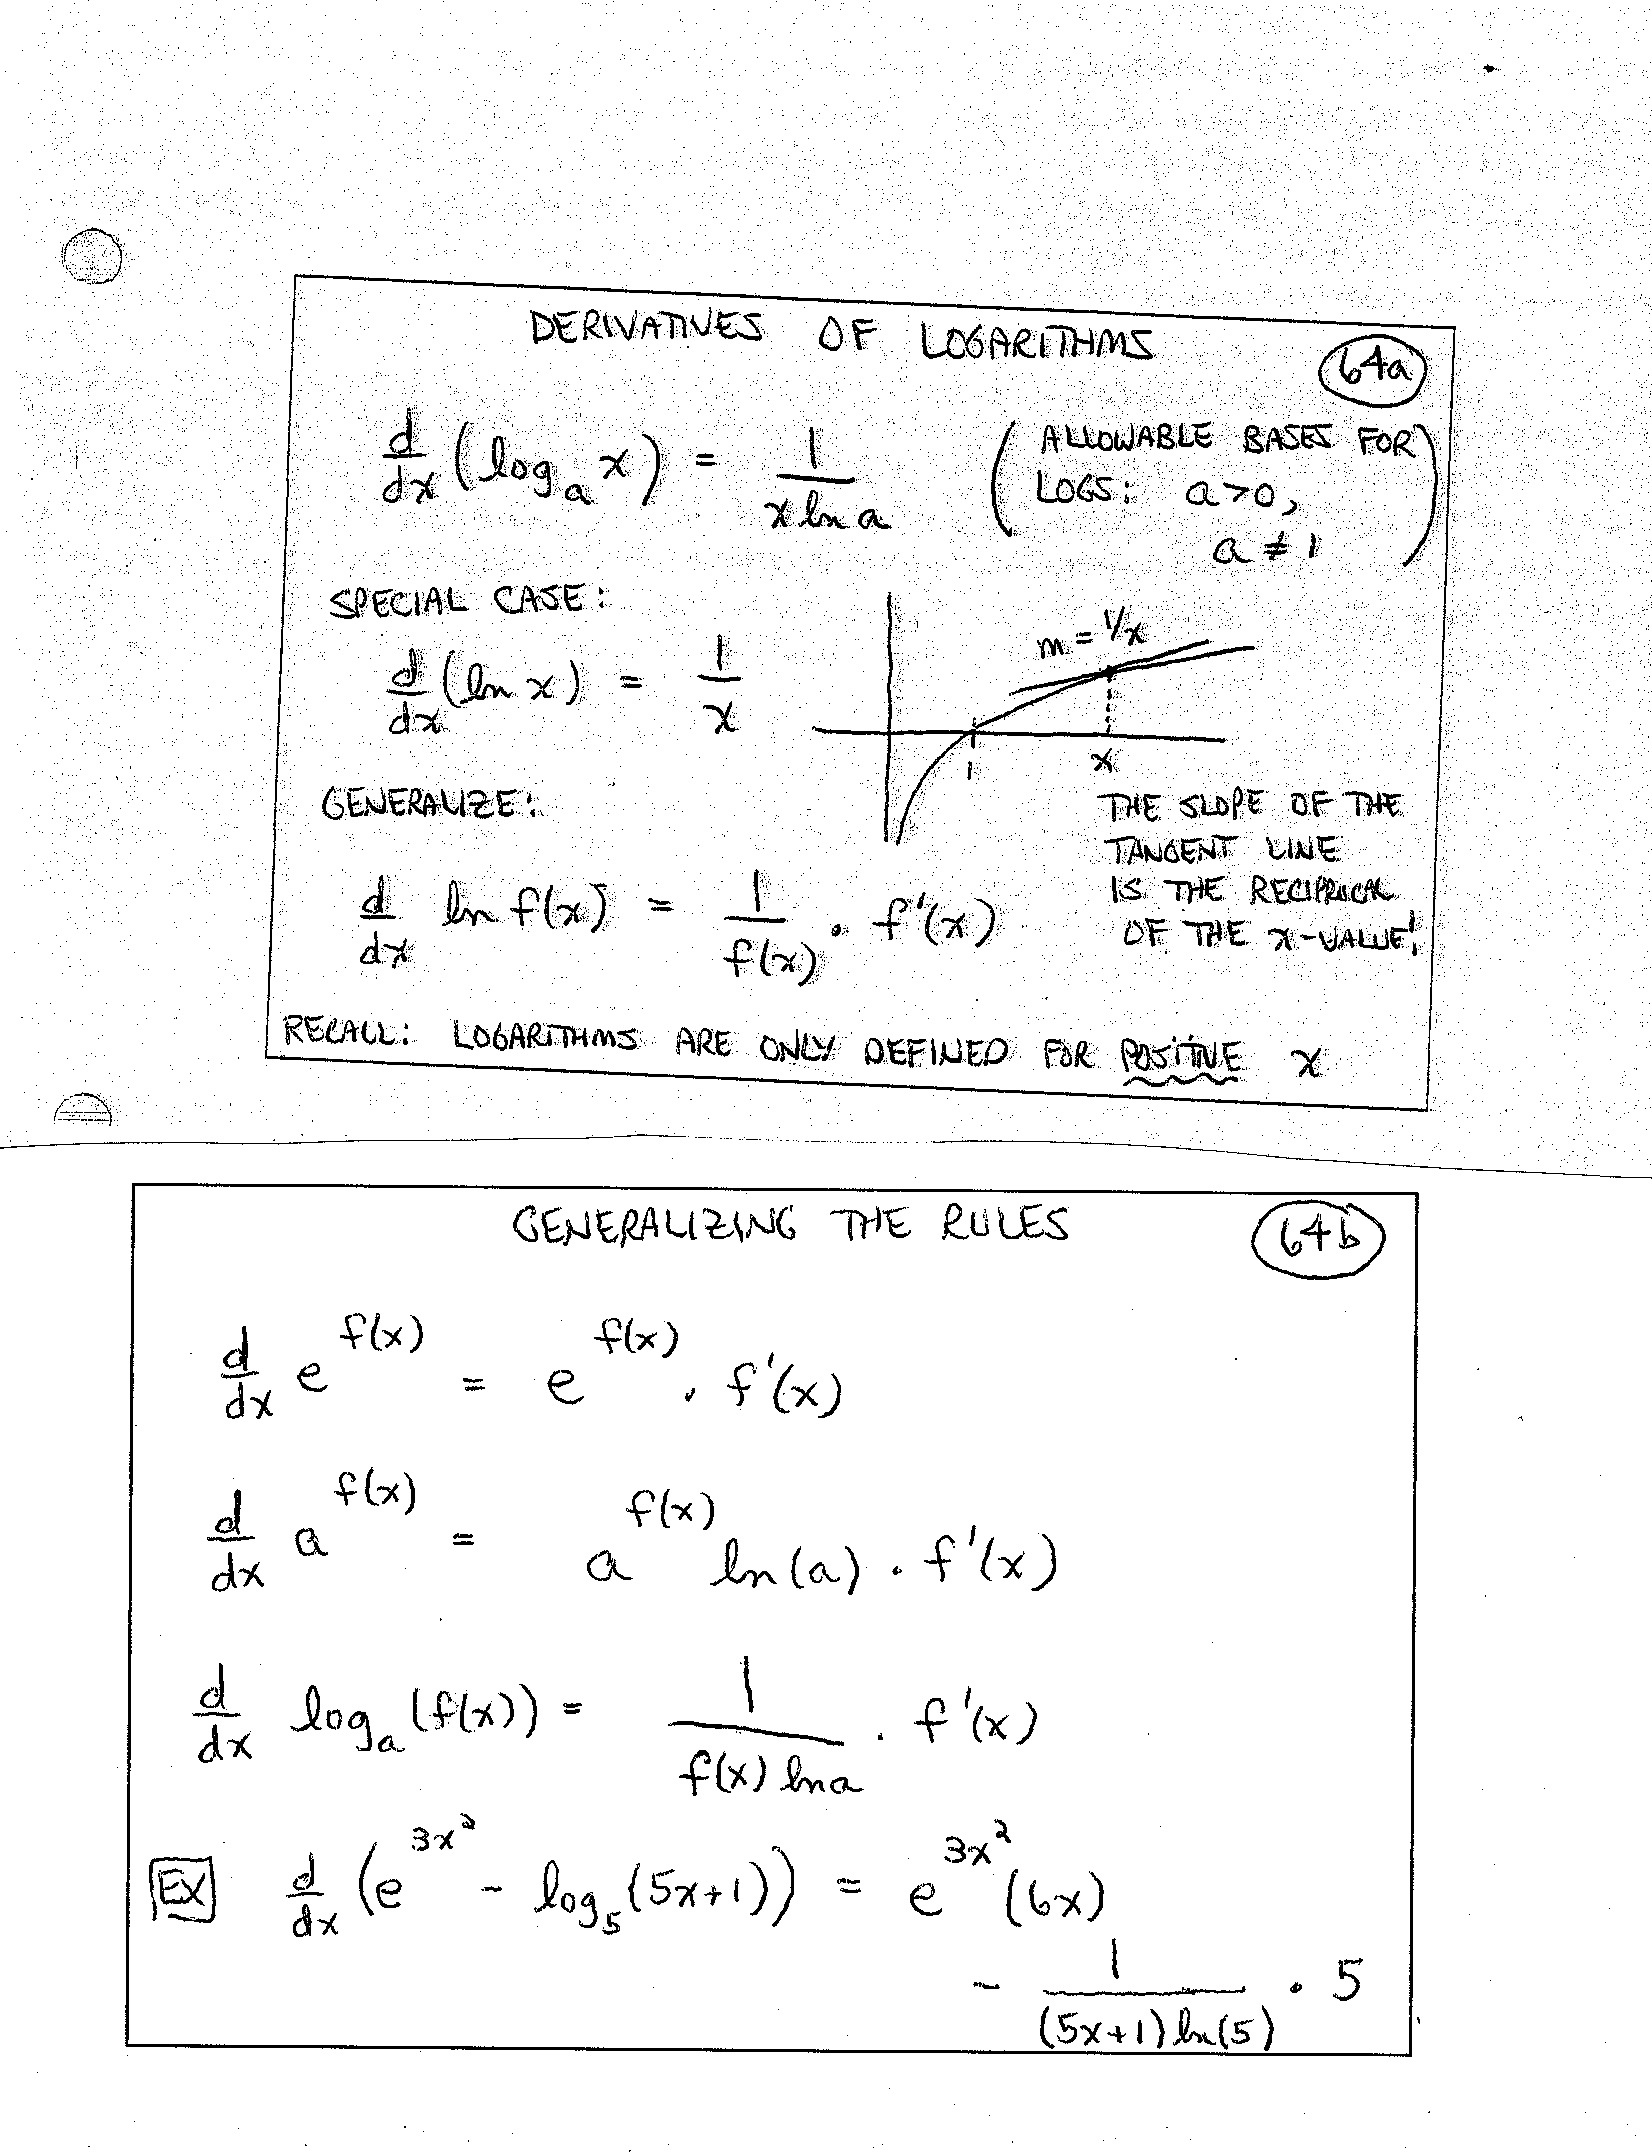 DERIVATIVES OF LOGARITHMS
64a
d/dx (log_a x) = 1/(x ln a) (ALLOWABLE BASES FOR
LOGS: a>0,
a ≠ 1)
SPECIAL CASE:
m = 1/x
d/dx (ln x) = 1/x
1 x
GENERALIZE:
THE SLOPE OF THE
TANGENT LINE
IS THE RECIPROCAL
OF THE x-VALUE!
d/dx ln f(x) = 1/f(x) · f'(x)
RECALL: LOGARITHMS ARE ONLY DEFINED FOR POSITIVE x
GENERALIZING THE RULES
64b
d/dx e^f(x) = e^f(x) · f'(x)
d/dx a^f(x) = a^f(x) ln(a) · f'(x)
d/dx log_a (f(x)) = 1/(f(x) ln a) · f'(x)
EX d/dx (e^3x² - log_5 (5x+1)) = e^3x² (6x)
- 1/((5x+1) ln(5)) · 5